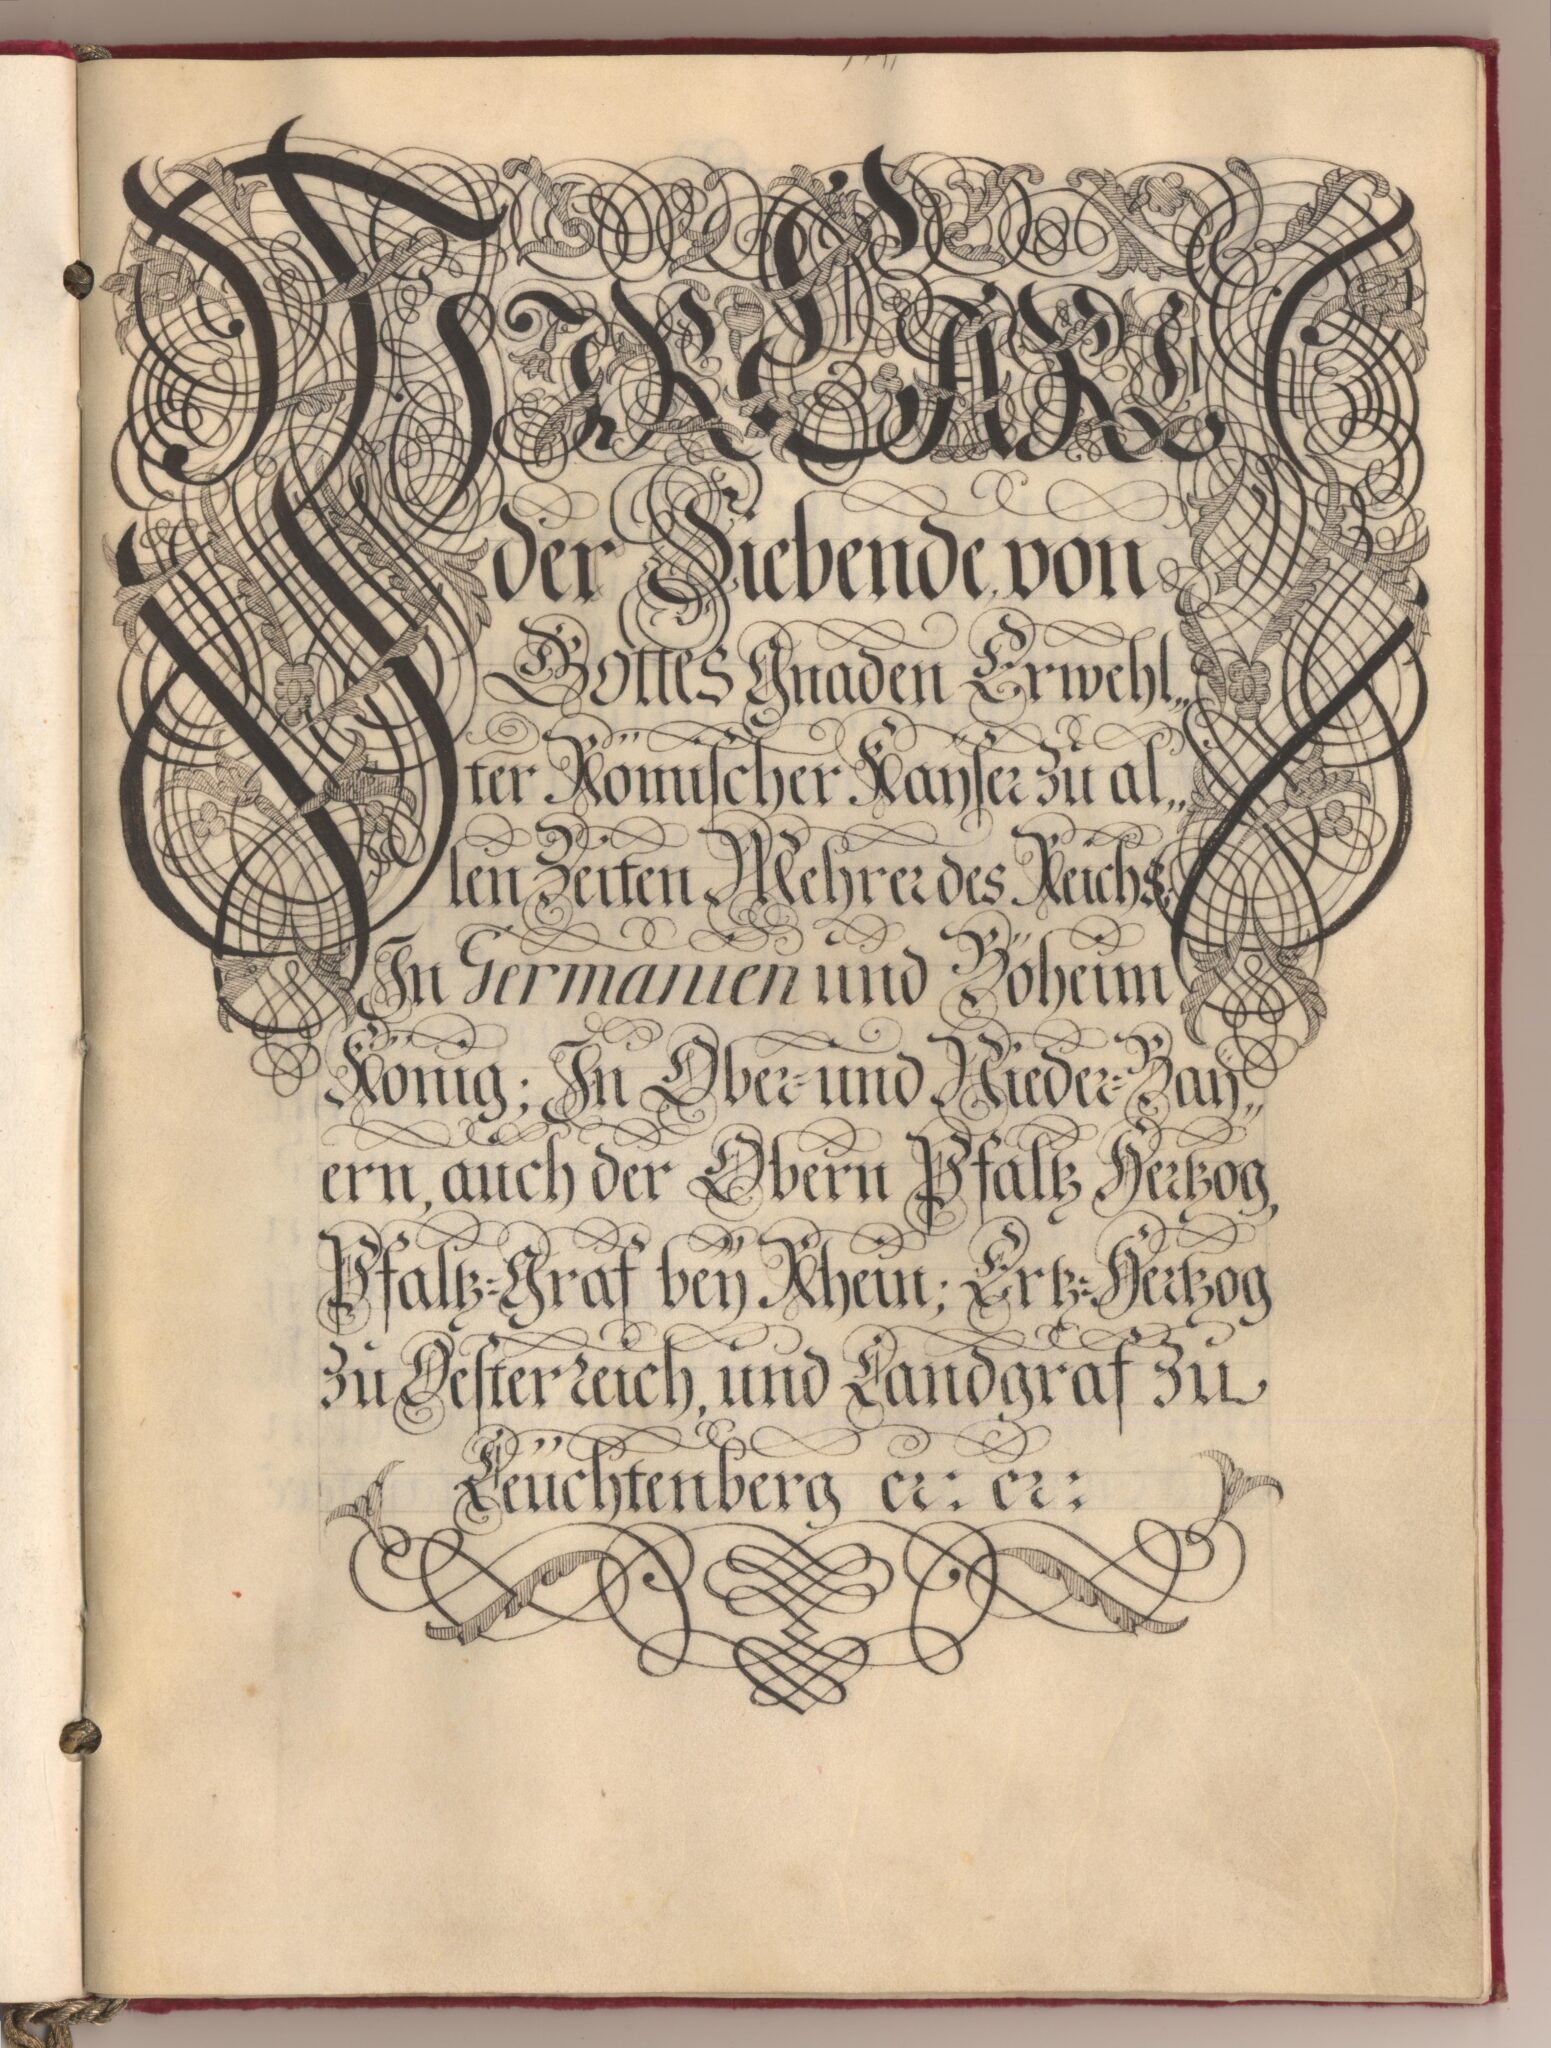 WIR CARL
der Siebende, von
Gottes Gnaden Erwehl„
ter Römischer Kaÿser zu al„
len Zeiten Mehrer des Reichs,
In Germanien und Böheim
König; In Ober- und Nieder-Baÿ„
ern, auch der Obern Pfaltz Hertzog,
Pfaltz-Graf beÿ Rhein; Ertz-Hertzog
zu Oesterreich, und Landgraf zu
Leüchtenberg ꝛc: ꝛc: